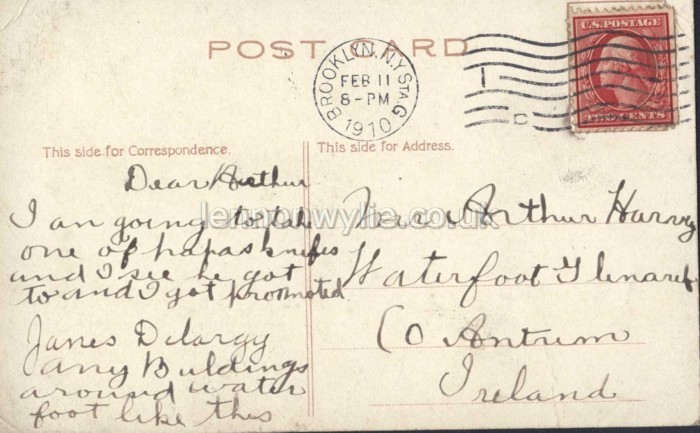 POST CARD
BROOKLYN, N.Y. STA. G
FEB 11
8-PM
1910
U.S. POSTAGE
TWO CENTS
This side for Correspondence.
This side for Address.
Dear Arthur
I an going to take
one of papas knifes
and I see he got
to and I got promoted
James Delargy
any Buildings
around water
foot like this
Arthur Harvey
Waterfoot Glenariff
CO Antrim
Ireland
lennonwylie.co.uk